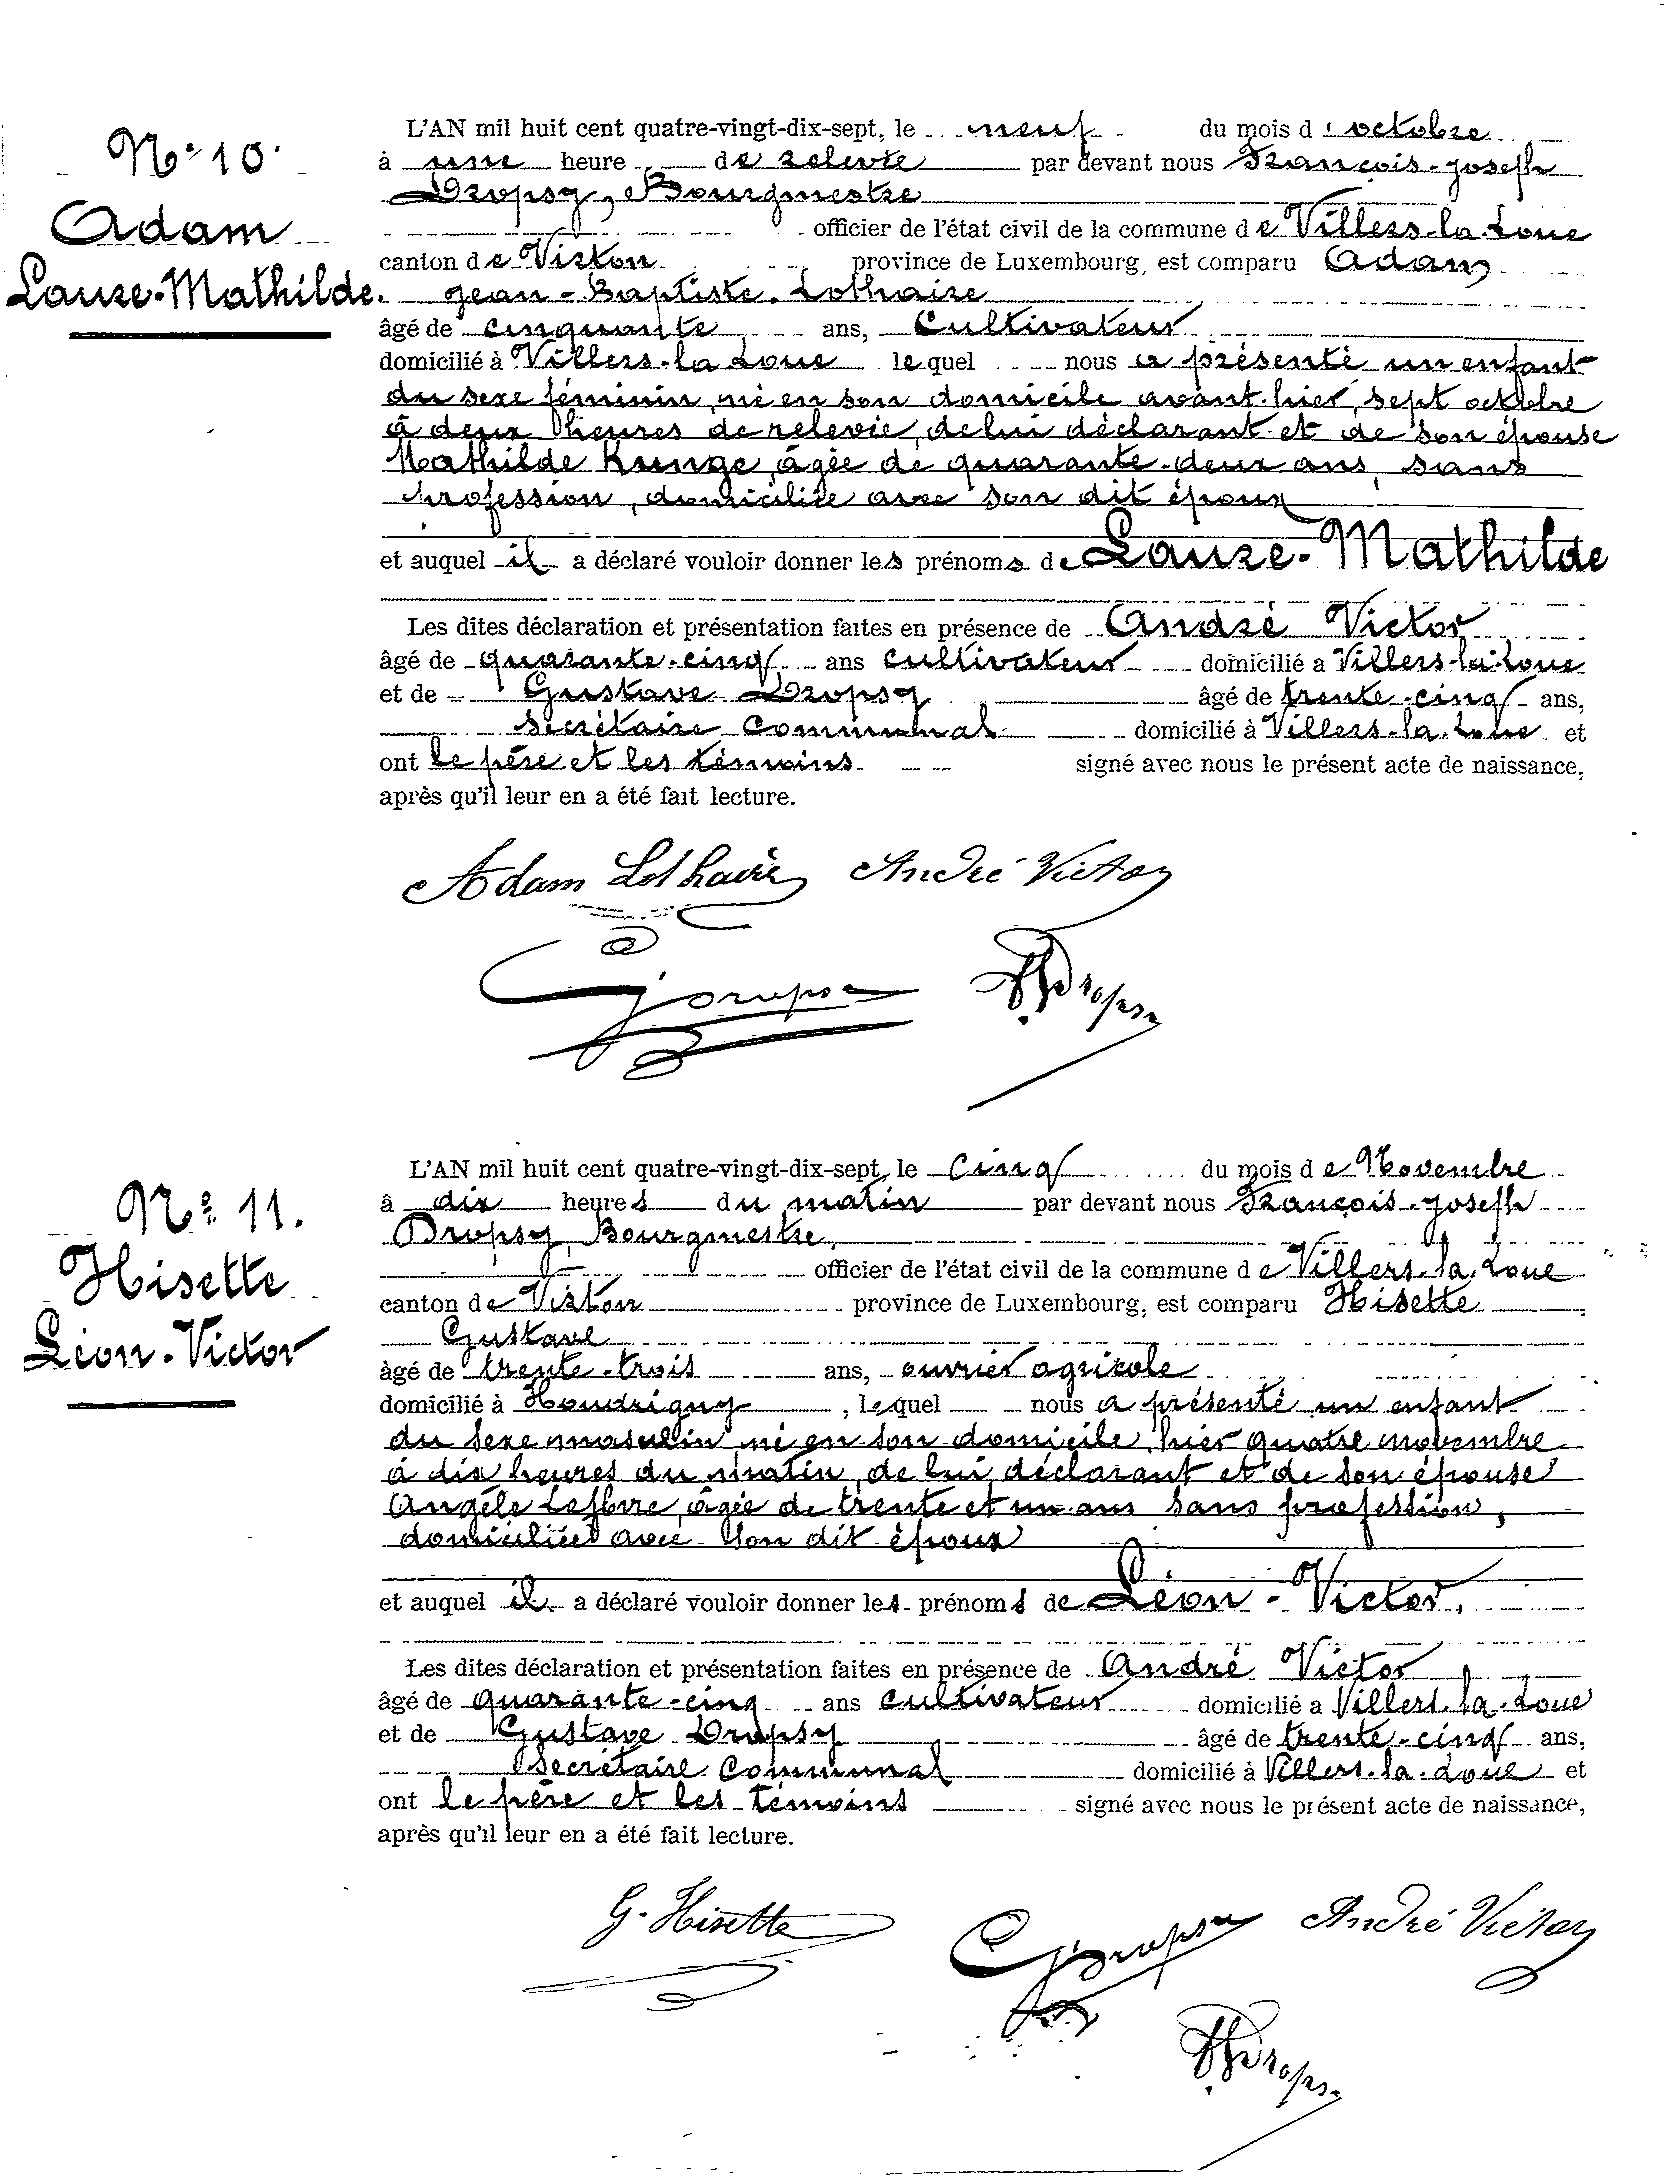 N° 10
Adam
Laure-Mathilde.
L'AN mil huit cent quatre-vingt-dix-sept, le neuf du mois d'octobre
à une heure de relevée par devant nous François-Joseph
Dropsy, Bourgmestre
officier de l'état civil de la commune de Villers-la-Loue
canton de Virton province de Luxembourg, est comparu Adam
Jean-Baptiste-Lothaire
âgé de cinquante ans, Cultivateur
domicilié à Villers-la-Loue lequel nous a présenté un enfant
du sexe féminin, né en son domicile avant-hier, sept octobre
à deux heures de relevée, de lui déclarant et de son épouse
Mathilde Kunge, âgée de quarante-deux ans, sans
profession, domiciliée avec son dit époux
et auquel il a déclaré vouloir donner les prénoms de Laure-Mathilde
Les dites déclaration et présentation faites en présence de André Victor
âgé de quarante-cinq ans cultivateur domicilié a Villers-la-Loue
et de Gustave Dropsy âgé de trente-cinq ans,
secrétaire communal domicilié à Villers-la-Loue et
ont le père et les témoins signé avec nous le présent acte de naissance,
après qu'il leur en a été fait lecture.
Adam Lothaire André Victor
GDropsy FJDropsy
N° 11.
Hisette
Léon-Victor
L'AN mil huit cent quatre-vingt-dix-sept, le cinq du mois de Novembre
à dix heures du matin par devant nous François-Joseph
Dropsy, Bourgmestre,
officier de l'état civil de la commune de Villers-la-Loue
canton de Virton province de Luxembourg, est comparu Hisette
Gustave
âgé de trente-trois ans, ouvrier agricole
domicilié à Houdrigny, lequel nous a présenté un enfant
du sexe masculin né en son domicile, hier quatre novembre
à dix heures du matin, de lui déclarant et de son épouse
Angèle Lefèvre, âgée de trente et un ans sans profession,
domiciliée avec son dit époux
et auquel il a déclaré vouloir donner les prénoms de Léon-Victor.
Les dites déclaration et présentation faites en présence de André Victor
âgé de quarante-cinq ans cultivateur domicilié a Villers-la-Loue
et de Gustave Dropsy âgé de trente-cinq ans,
Secrétaire communal domicilié à Villers-la-Loue et
ont le père et les témoins signé avec nous le présent acte de naissance,
après qu'il leur en a été fait lecture.
G. Hisette GDropsy André Victor
FJDropsy